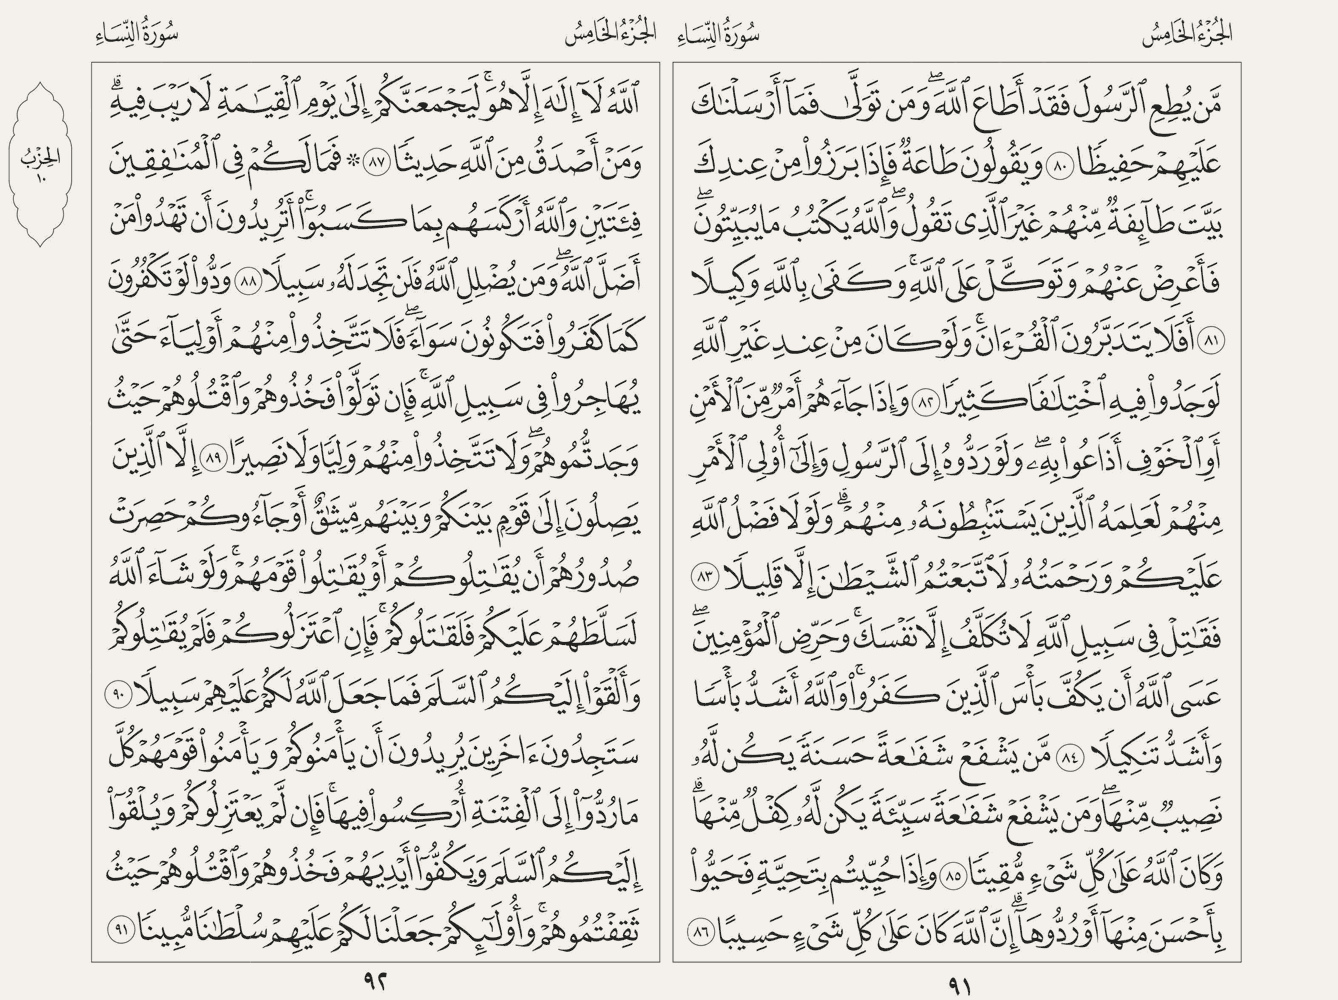 الجزء الخامس
سورة النساء
مَّن يُطِعِ ٱلرَّسُولَ فَقَدْ أَطَاعَ ٱللَّهَۖ وَمَن تَوَلَّىٰ فَمَآ أَرْسَلْنَٰكَ
عَلَيْهِمْ حَفِيظًا ٨٠ وَيَقُولُونَ طَاعَةٌ فَإِذَا بَرَزُوا۟ مِنْ عِندِكَ
بَيَّتَ طَآئِفَةٌ مِّنْهُمْ غَيْرَ ٱلَّذِى تَقُولُۖ وَٱللَّهُ يَكْتُبُ مَا يُبَيِّتُونَۖ
فَأَعْرِضْ عَنْهُمْ وَتَوَكَّلْ عَلَى ٱللَّهِۚ وَكَفَىٰ بِٱللَّهِ وَكِيلًا
٨١ أَفَلَا يَتَدَبَّرُونَ ٱلْقُرْءَانَۚ وَلَوْ كَانَ مِنْ عِندِ غَيْرِ ٱللَّهِ
لَوَجَدُوا۟ فِيهِ ٱخْتِلَٰفًا كَثِيرًا ٨٢ وَإِذَا جَآءَهُمْ أَمْرٌ مِّنَ ٱلْأَمْنِ
أَوِ ٱلْخَوْفِ أَذَاعُوا۟ بِهِۦۖ وَلَوْ رَدُّوهُ إِلَى ٱلرَّسُولِ وَإِلَىٰٓ أُو۟لِى ٱلْأَمْرِ
مِنْهُمْ لَعَلِمَهُ ٱلَّذِينَ يَسْتَنۢبِطُونَهُۥ مِنْهُمْۗ وَلَوْلَا فَضْلُ ٱللَّهِ
عَلَيْكُمْ وَرَحْمَتُهُۥ لَٱتَّبَعْتُمُ ٱلشَّيْطَٰنَ إِلَّا قَلِيلًا ٨٣
فَقَٰتِلْ فِى سَبِيلِ ٱللَّهِ لَا تُكَلَّفُ إِلَّا نَفْسَكَۚ وَحَرِّضِ ٱلْمُؤْمِنِينَۖ
عَسَى ٱللَّهُ أَن يَكُفَّ بَأْسَ ٱلَّذِينَ كَفَرُوا۟ۚ وَٱللَّهُ أَشَدُّ بَأْسًا
وَأَشَدُّ تَنكِيلًا ٨٤ مَّن يَشْفَعْ شَفَٰعَةً حَسَنَةً يَكُن لَّهُۥ
نَصِيبٌ مِّنْهَاۖ وَمَن يَشْفَعْ شَفَٰعَةً سَيِّئَةً يَكُن لَّهُۥ كِفْلٌ مِّنْهَاۗ
وَكَانَ ٱللَّهُ عَلَىٰ كُلِّ شَىْءٍ مُّقِيتًا ٨٥ وَإِذَا حُيِّيتُم بِتَحِيَّةٍ فَحَيُّوا۟
بِأَحْسَنَ مِنْهَآ أَوْ رُدُّوهَآۗ إِنَّ ٱللَّهَ كَانَ عَلَىٰ كُلِّ شَىْءٍ حَسِيبًا ٨٦
٩١
الجزء الخامس
سورة النساء
ٱللَّهُ لَآ إِلَٰهَ إِلَّا هُوَۚ لَيَجْمَعَنَّكُمْ إِلَىٰ يَوْمِ ٱلْقِيَٰمَةِ لَا رَيْبَ فِيهِۗ
وَمَنْ أَصْدَقُ مِنَ ٱللَّهِ حَدِيثًا ٨٧ ۞ فَمَا لَكُمْ فِى ٱلْمُنَٰفِقِينَ
فِئَتَيْنِ وَٱللَّهُ أَرْكَسَهُم بِمَا كَسَبُوٓا۟ۚ أَتُرِيدُونَ أَن تَهْدُوا۟ مَنْ
أَضَلَّ ٱللَّهُۖ وَمَن يُضْلِلِ ٱللَّهُ فَلَن تَجِدَ لَهُۥ سَبِيلًا ٨٨ وَدُّوا۟ لَوْ تَكْفُرُونَ
كَمَا كَفَرُوا۟ فَتَكُونُونَ سَوَآءًۖ فَلَا تَتَّخِذُوا۟ مِنْهُمْ أَوْلِيَآءَ حَتَّىٰ
يُهَاجِرُوا۟ فِى سَبِيلِ ٱللَّهِۚ فَإِن تَوَلَّوْا۟ فَخُذُوهُمْ وَٱقْتُلُوهُمْ حَيْثُ
وَجَدتُّمُوهُمْۖ وَلَا تَتَّخِذُوا۟ مِنْهُمْ وَلِيًّا وَلَا نَصِيرًا ٨٩ إِلَّا ٱلَّذِينَ
يَصِلُونَ إِلَىٰ قَوْمٍۭ بَيْنَكُمْ وَبَيْنَهُم مِّيثَٰقٌ أَوْ جَآءُوكُمْ حَصِرَتْ
صُدُورُهُمْ أَن يُقَٰتِلُوكُمْ أَوْ يُقَٰتِلُوا۟ قَوْمَهُمْۚ وَلَوْ شَآءَ ٱللَّهُ
لَسَلَّطَهُمْ عَلَيْكُمْ فَلَقَٰتَلُوكُمْۚ فَإِنِ ٱعْتَزَلُوكُمْ فَلَمْ يُقَٰتِلُوكُمْ
وَأَلْقَوْا۟ إِلَيْكُمُ ٱلسَّلَمَ فَمَا جَعَلَ ٱللَّهُ لَكُمْ عَلَيْهِمْ سَبِيلًا ٩٠
سَتَجِدُونَ ءَاخَرِينَ يُرِيدُونَ أَن يَأْمَنُوكُمْ وَيَأْمَنُوا۟ قَوْمَهُمْ كُلَّ
مَا رُدُّوٓا۟ إِلَى ٱلْفِتْنَةِ أُرْكِسُوا۟ فِيهَاۚ فَإِن لَّمْ يَعْتَزِلُوكُمْ وَيُلْقُوٓا۟
إِلَيْكُمُ ٱلسَّلَمَ وَيَكُفُّوٓا۟ أَيْدِيَهُمْ فَخُذُوهُمْ وَٱقْتُلُوهُمْ حَيْثُ
ثَقِفْتُمُوهُمْۚ وَأُو۟لَٰٓئِكُمْ جَعَلْنَا لَكُمْ عَلَيْهِمْ سُلْطَٰنًا مُّبِينًا ٩١
٩٢
الحزب
١٠